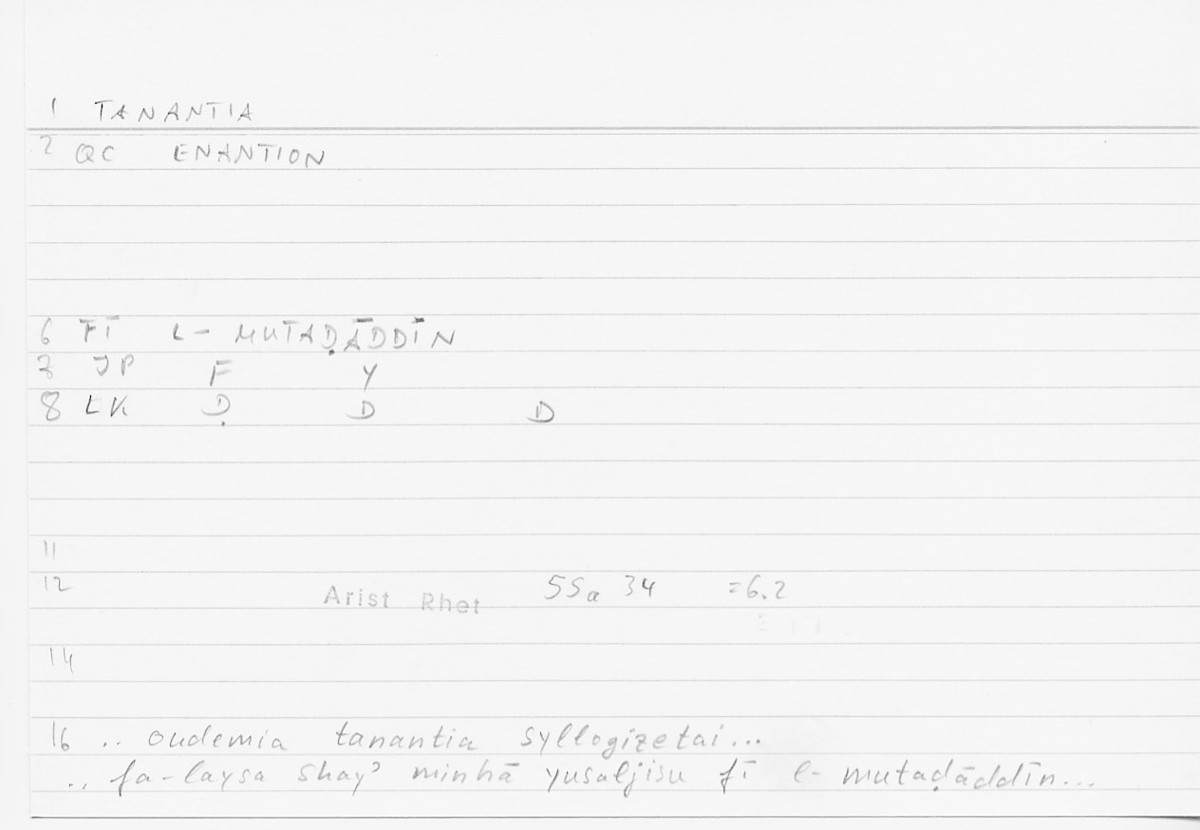 1 TANANTIA
2 QC ENANTION
6 FĪ L- MUTAḌĀDDĪN
7 JP F Y
8 LK Ḍ D D
11
12 Arist Rhet 55a 34 =6.2
14
16 .. oudemia tanantia syllogizetai...
.. fa-laysa shay' minhā yusaljisu fī l- mutaḍāddīn...